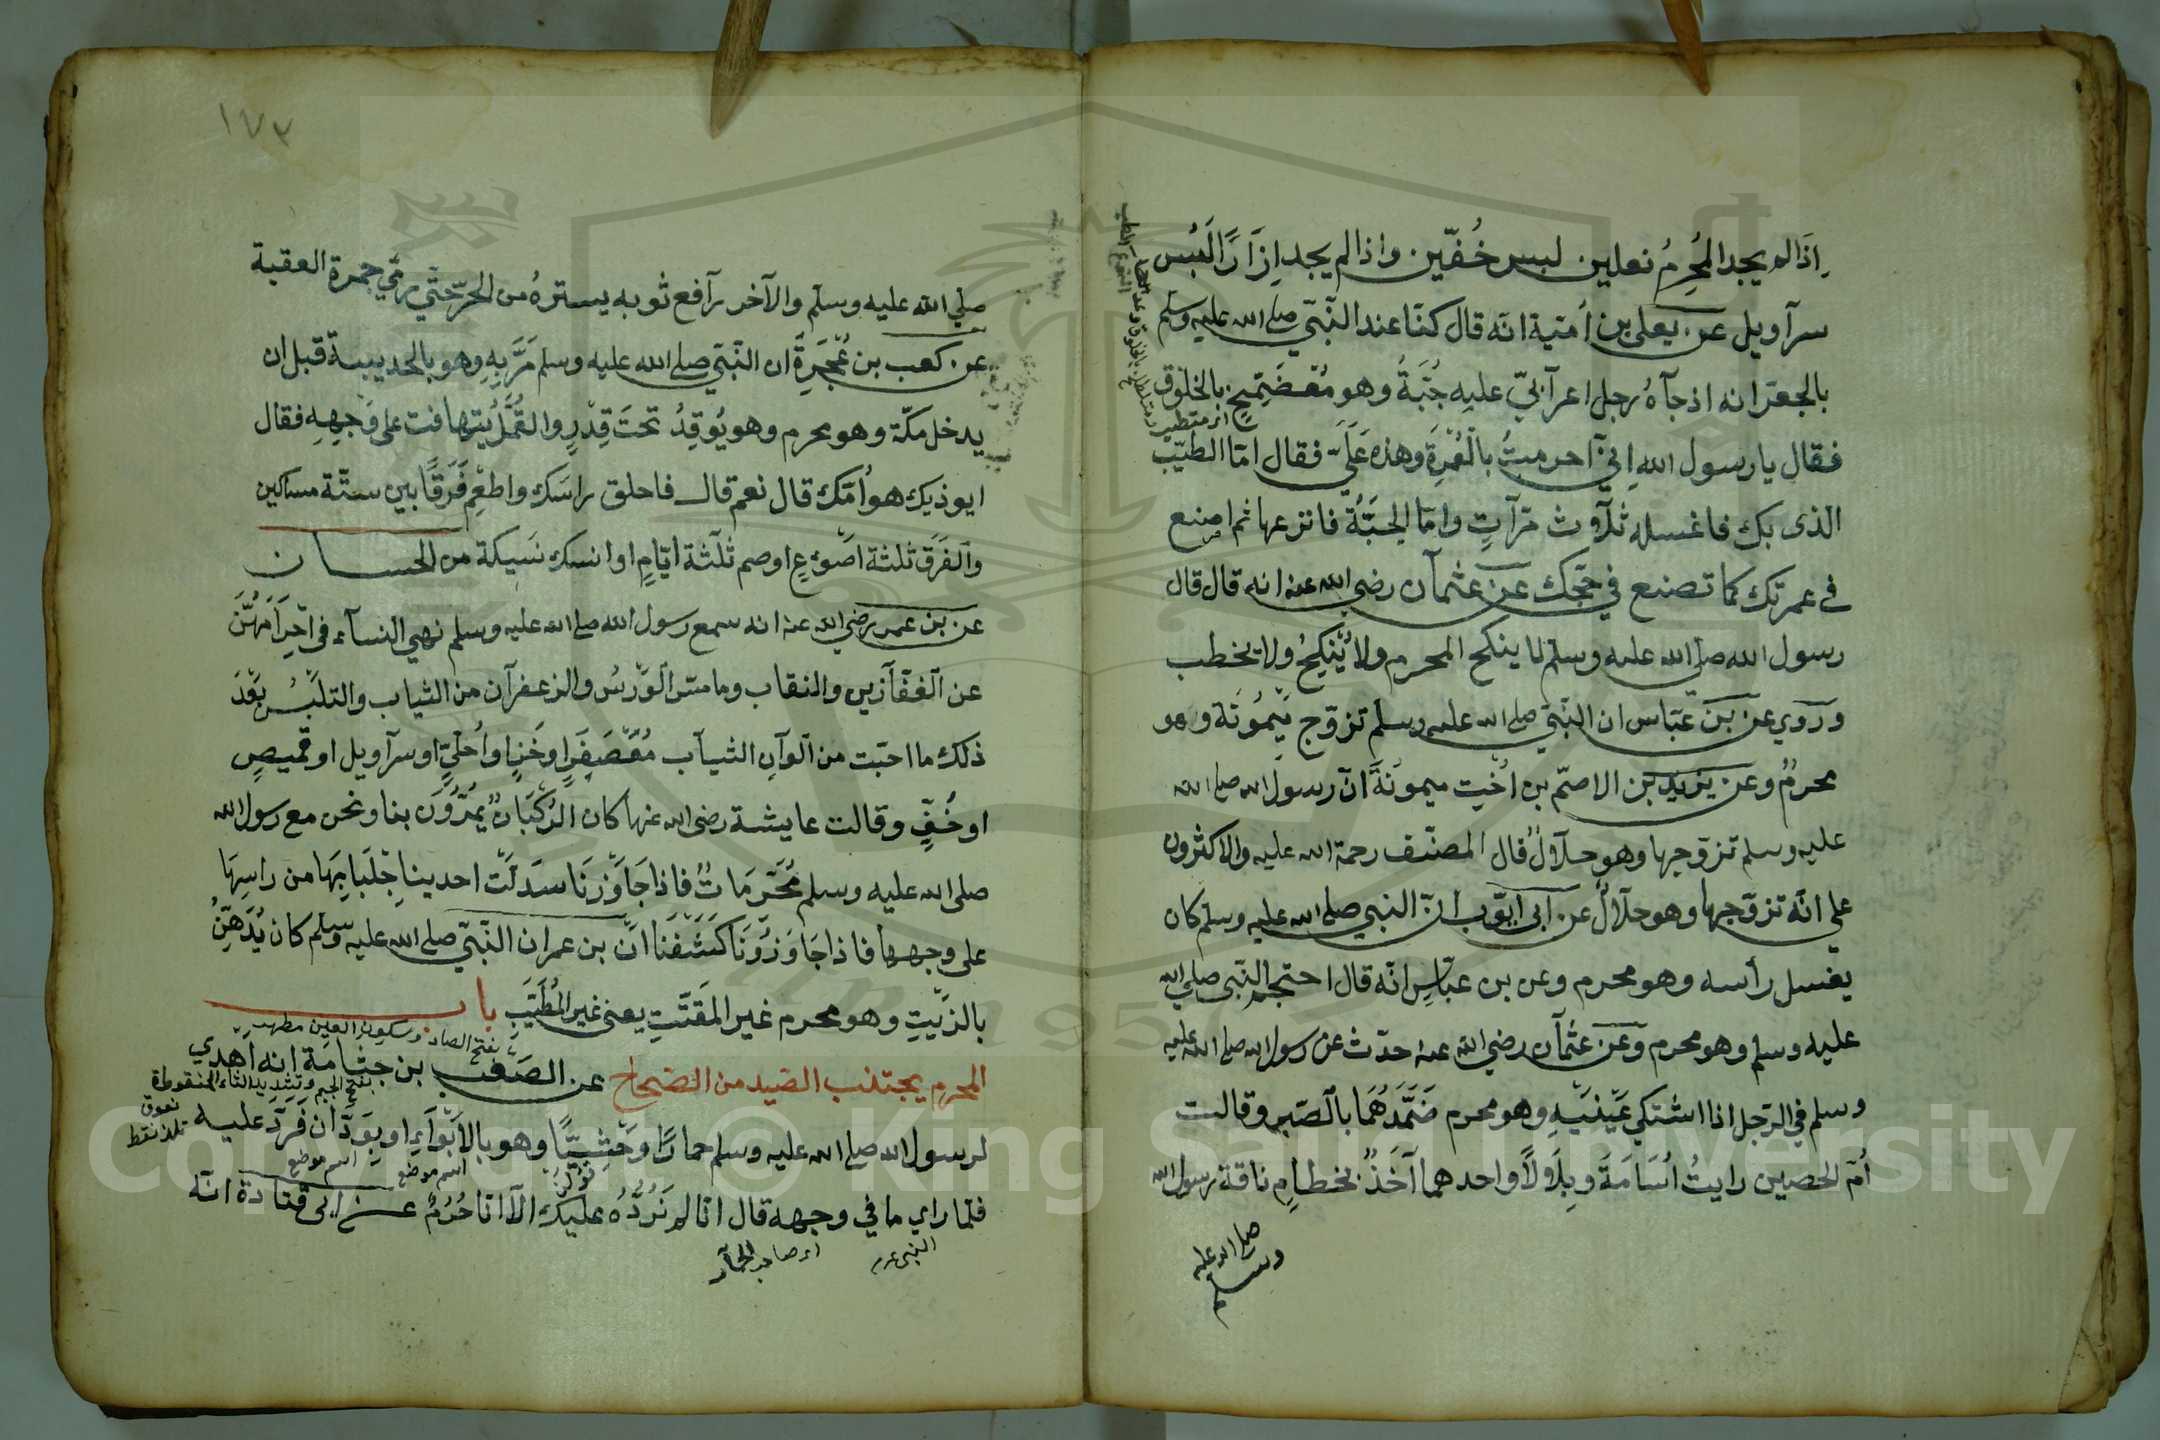 اذا لم يجد المُحرِمُ نعلين لبس خُفّين واذا لم يجد اِزَارًا لَبُس
سرآويل عن يعلى بن اُمَيّة انه قال كنّا عند النّبيّ صلى الله عليه وسلم
بالجعرّانه اذ جآءهُ رجل اعرآبيّ عليه جُبّةٌ وهو مُتضمّخٌ بالخلوق
فقال يا رسول الله اِنّي احرمتُ بالعُمرَة وهذه عَلَيّ فقال امّا الطّيب
الذى بك فاغسله ثلاث مرّآتٍ وامّا الجبّةُ فانزعها ثم اصنع
في عمرتك كما تصنع في حجّك عن عثمآن رضى الله عنه انه قال قال
رسول الله صلى الله عليه وسلم لا ينكح المحرم ولا يُنكِحُ ولا يخطب
ورُوي عن بن عبّاس ان النّبيّ صلى الله عليه وسلم تزوّج ميمُونَة وهو
محرمٌ وعن يزيد بن الاصمّ بن اُختِ ميمونةَ انّ رسول الله صلى الله
عليه وسلم تزوّجها وهو حلالٌ قال المصنّف رحمة الله عليه والاكثرون
على انّه تزوّجها وهو حلآلٌ عن ابى ايوّب انّ النبي صلى الله عليه وسلم كان
يغسل رأسه وهو محرم وعن بن عبّاسٍ انّه قال احتجم النّبى صلى الله
عليه وسلم وهو محرم وعن عثمآن رضى الله عنه حدّث عن رسول الله صلى الله عليه
وسلم في الرّجل اذا اشتكى عَينَيهِ وهو محرم ضَمَّدَهُمَا بالصّبر وقالت
اُمّ الحصين رايتُ اُسَامَةَ وبِلَالاً واحدهما آخذٌ بخطامِ ناقة رسول الله
صلى الله عليه
وسلم
اى متطيب
١٧٣
صلى الله عليه وسلم والآخر رآفع ثوبه يسترهُ من الحرّ حتّى رمي جمرة العقبة
عن كعب بن عُجرَةَ ان النّبيّ صلى الله عليه وسلم مَرَّ بِهِ وهو بالحديبية قبل ان
يدخل مكّة وهو محرم وهو يُوقِدُ تحتَ قِدْرٍ والقُمَّلُ يتهافت على وَجهِهِ فقال
ايوذيك هوآمّك قال نعم قال فاحلق راسَك واطعِم فَرَقًا بين ستّة مساكين
والفَرَق ثلثة اَصْوُعٍ او صم ثلثة ايّامٍ او انسك نسيكة من الحسان
عن بن عمر رضي الله عنه انه سمع رسول الله صلى الله عليه وسلم نهي النسآء فى اِحرَامهنَّ
عن القفّآزين والنقاب وما مسّ الوَرسُ والزعفرآن من الثياب والتلبسُ بَعْدَ
ذلك ما احبّت من الوان الثيآب مُعَصفَرٍ او خَزٍ او حُلِيٍّ او سرآويل او قميصٍ
او خُفٍّ وقالت عايشة رضى الله عنها كان الرُكبَانُ يمُرُّونَ بنا ونحن مع رسول الله
صلى الله عليه وسلم مُحَرّمَاتٌ فاذا جَاوَزُونَا سَدَلَتْ احدينا جِلبَابَهَا من راسِهَا
على وجهها فاذا جَاوَزُونَا كَشَفنَا انّ بن عمر ان النّبيّ صلى الله عليه وسلم كان يُدَهِّنُ
بالزَّيتِ وهو محرم غير المَقتَّتِ يعنى غير المُطَيَّبِ باب
بفتح الصاد وسكون العين
المحرم يجتنب الصّيد من الصّحاح عن الصَعْب بن جثّامَة انه اَهْدي
بفتح الجيم وتشديد الثاء المنقوطة
لرسول الله صلى الله عليه وسلم حمارًا وَحْشِيًّا وهو بالاَبْوآءِ او بِوَدّانَ فَرَدَّ عليه
اسم موضع اسم موضع
فلمّا راي ما في وجهه قال انّا لم نَرُدَّهُ عليك الّا انا حُرُمٌ عن ابى قتادة انّه